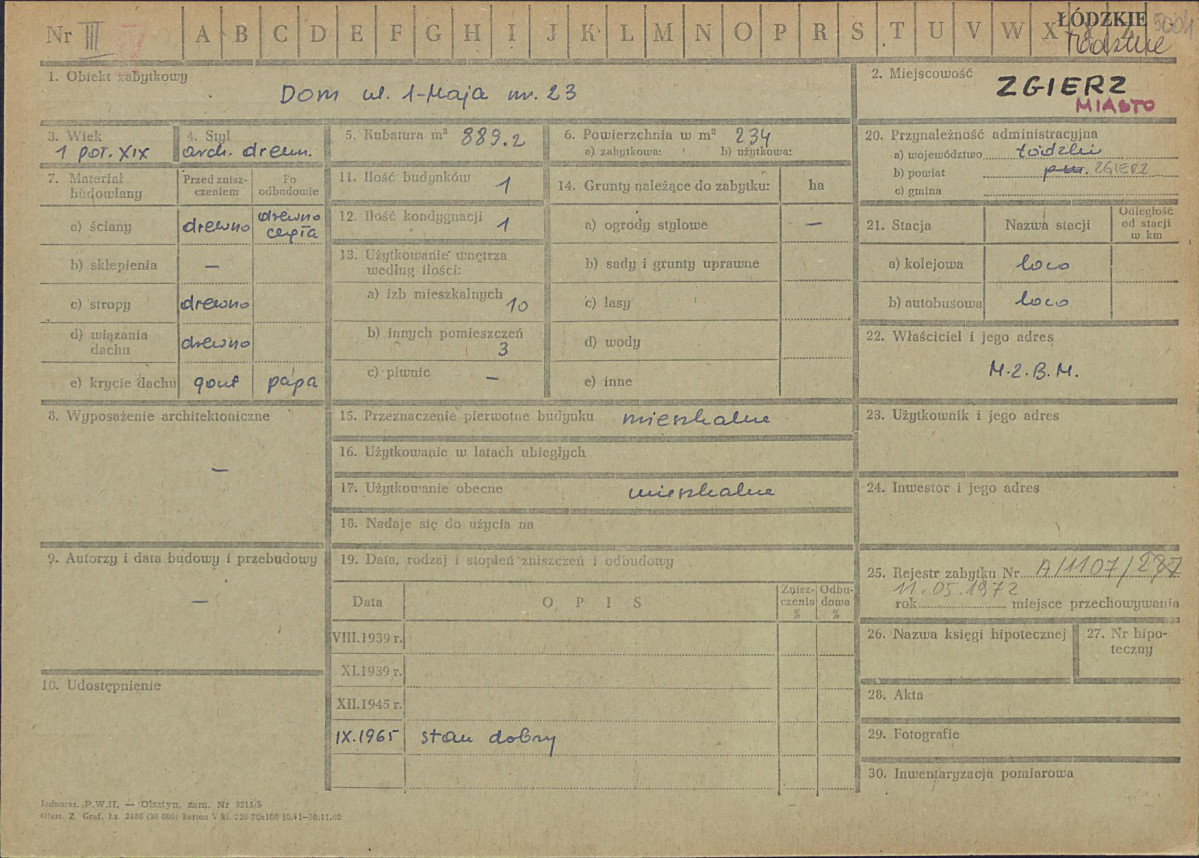 Nr III A B C D E F G H I J K L M N O P R S T U V W X Y Z
ŁÓDZKIE
łódzkie
1. Obiekt zabytkowy
Dom ul. 1-Maja nr. 23
2. Miejscowość
ZGIERZ
MIASTO
3. Wiek
1 poł. XIX
4. Styl
arch. drewn.
5. Kubatura m³ 889,2
6. Powierzchnia w m² 234
a) zabytkowa: b) użytkowa:
20. Przynależność administracyjna
a) województwo łódzkie
b) powiat ZGIERZ
c) gmina
7. Materiał budowlany
Przed znisz-
czeniem
Po
odbudowie
a) ściany drewno drewno
cegła
b) sklepienia —
c) stropy drewno
d) wiązania
dachu drewno
e) krycie dachu gont papa
11. Ilość budynków 1
12. Ilość kondygnacji 1
13. Użytkowanie wnętrza
według ilości:
a) izb mieszkalnych
10
b) innych pomieszczeń
3
c) piwnic —
14. Grunty należące do zabytku: ha
a) ogrody stylowe —
b) sady i grunty uprawne
c) lasy
d) wody
e) inne
21. Stacja Nazwa stacji
Odległość
od stacji
w km
a) kolejowa loco
b) autobusowa loco
22. Właściciel i jego adres
M.Z.B.M.
8. Wyposażenie architektoniczne
—
15. Przeznaczenie pierwotne budynku mieszkalne
16. Użytkowanie w latach ubiegłych
17. Użytkowanie obecne mieszkalne
18. Nadaje się do użycia na
23. Użytkownik i jego adres
24. Inwestor i jego adres
9. Autorzy i data budowy i przebudowy
—
19. Data, rodzaj i stopień zniszczeń i odbudowy
Data O P I S
Znisz-
czenia
%
Odbu-
dowa
%
VIII.1939 r.
XI.1939 r.
XII.1945 r.
IX.1965 stan dobry
25. Rejestr zabytku Nr A/1107/287
11.05.1972
rok miejsce przechowywania
26. Nazwa księgi hipotecznej
27. Nr hipo-
teczny
10. Udostępnienie
28. Akta
29. Fotografie
30. Inwentaryzacja pomiarowa
Jednoraz. P.W.H. — Olsztyn, zam. Nr 3215/S